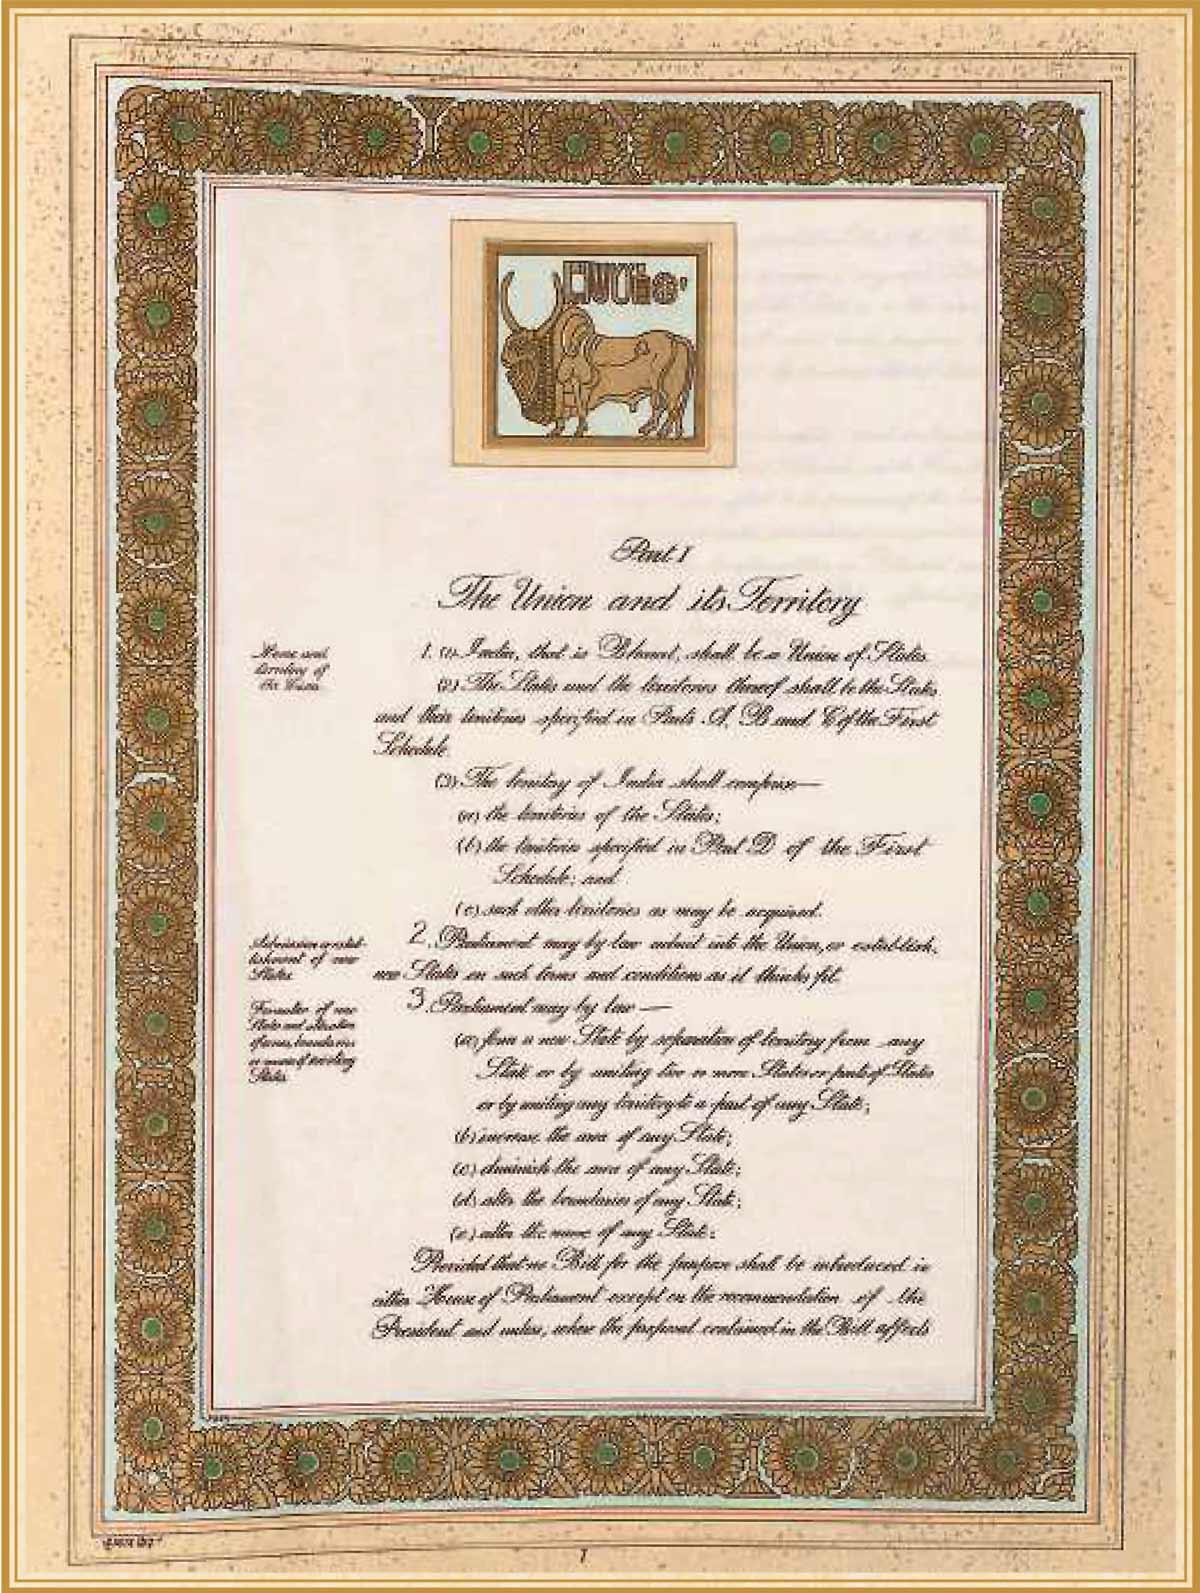 Part I
The Union and its Territory
Name and
territory of
the Union.
1. (1) India, that is Bharat, shall be a Union of States.
(2) The States and the territories thereof shall be the States
and their territories specified in Parts A, B and C of the First
Schedule.
(3) The territory of India shall comprise—
(a) the territories of the States;
(b) the territories specified in Part D of the First
Schedule; and
(c) such other territories as may be acquired.
Admission or estab-
lishment of new
States.
2. Parliament may by law admit into the Union, or establish,
new States on such terms and conditions as it thinks fit.
Formation of new
States and alteration
of areas, boundaries
or names of existing
States.
3. Parliament may by law —
(a) form a new State by separation of territory from any
State or by uniting two or more States or parts of States
or by uniting any territory to a part of any State;
(b) increase the area of any State;
(c) diminish the area of any State;
(d) alter the boundaries of any State;
(e) alter the name of any State:
Provided that no Bill for the purpose shall be introduced in
either House of Parliament except on the recommendation of the
President and unless, where the proposal contained in the Bill affects
1